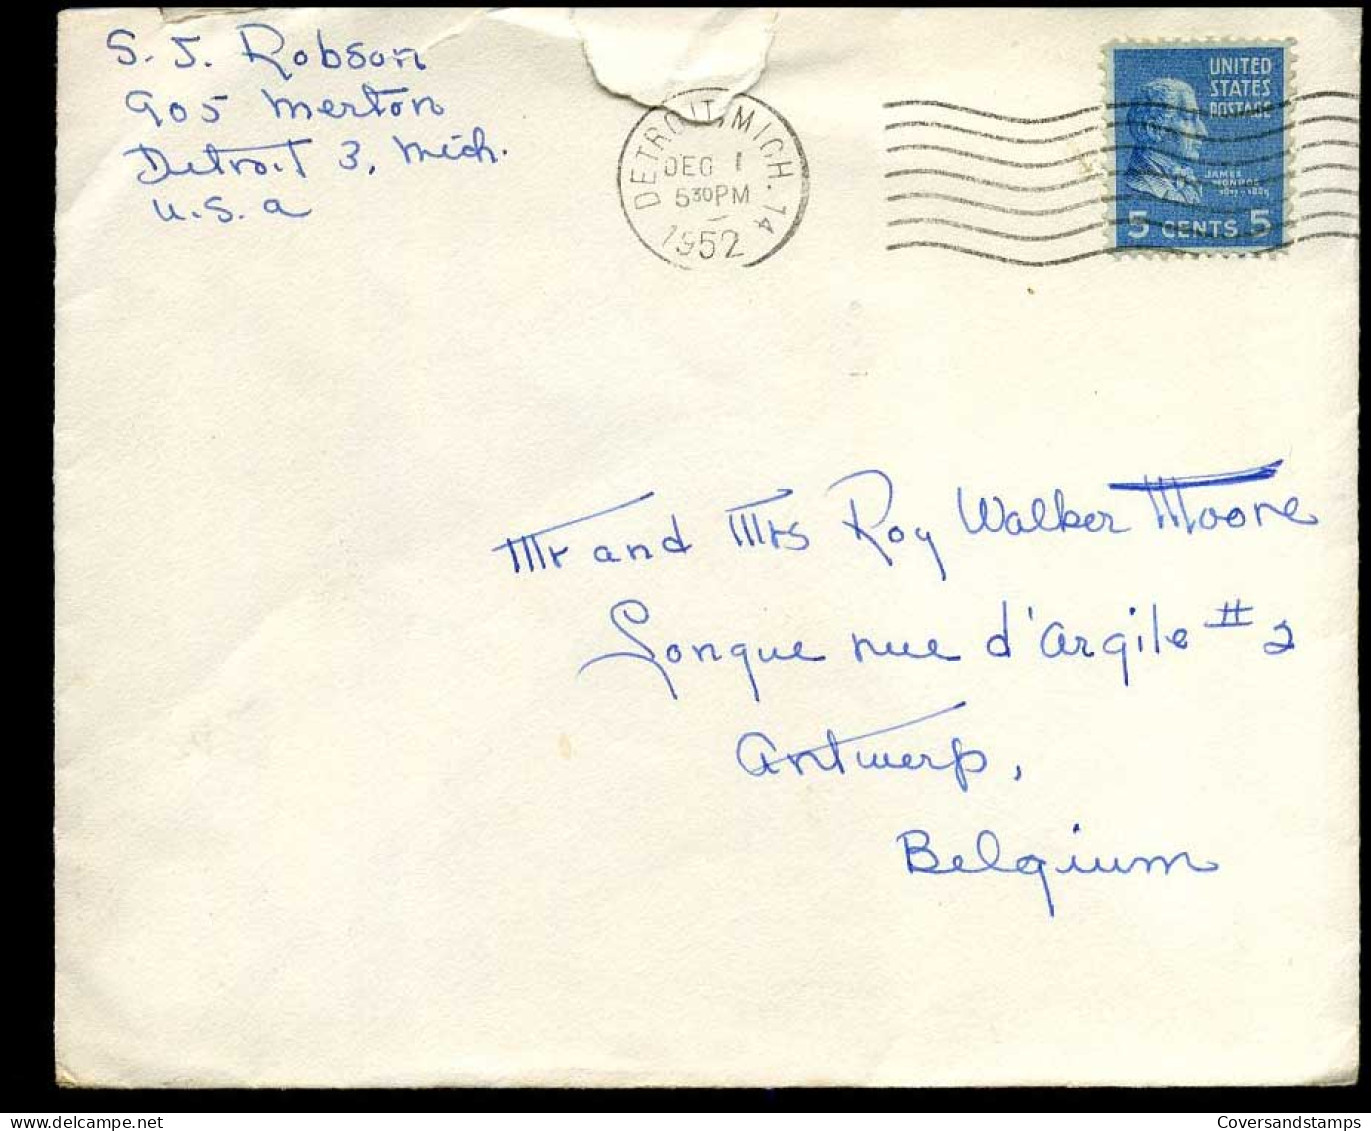 S. J. Robson
905 Merton
Detroit 3, Mich.
U.S.A
DETROIT, MICH. 14
DEC 1
530PM
1952
UNITED
STATES
POSTAGE
JAMES
MONROE
1817-1825
5 CENTS 5
Mr and Mrs Roy Walker Moore
Longue rue d'Argile #2
Antwerp,
Belgium
delcampe.net
Coversandstamps